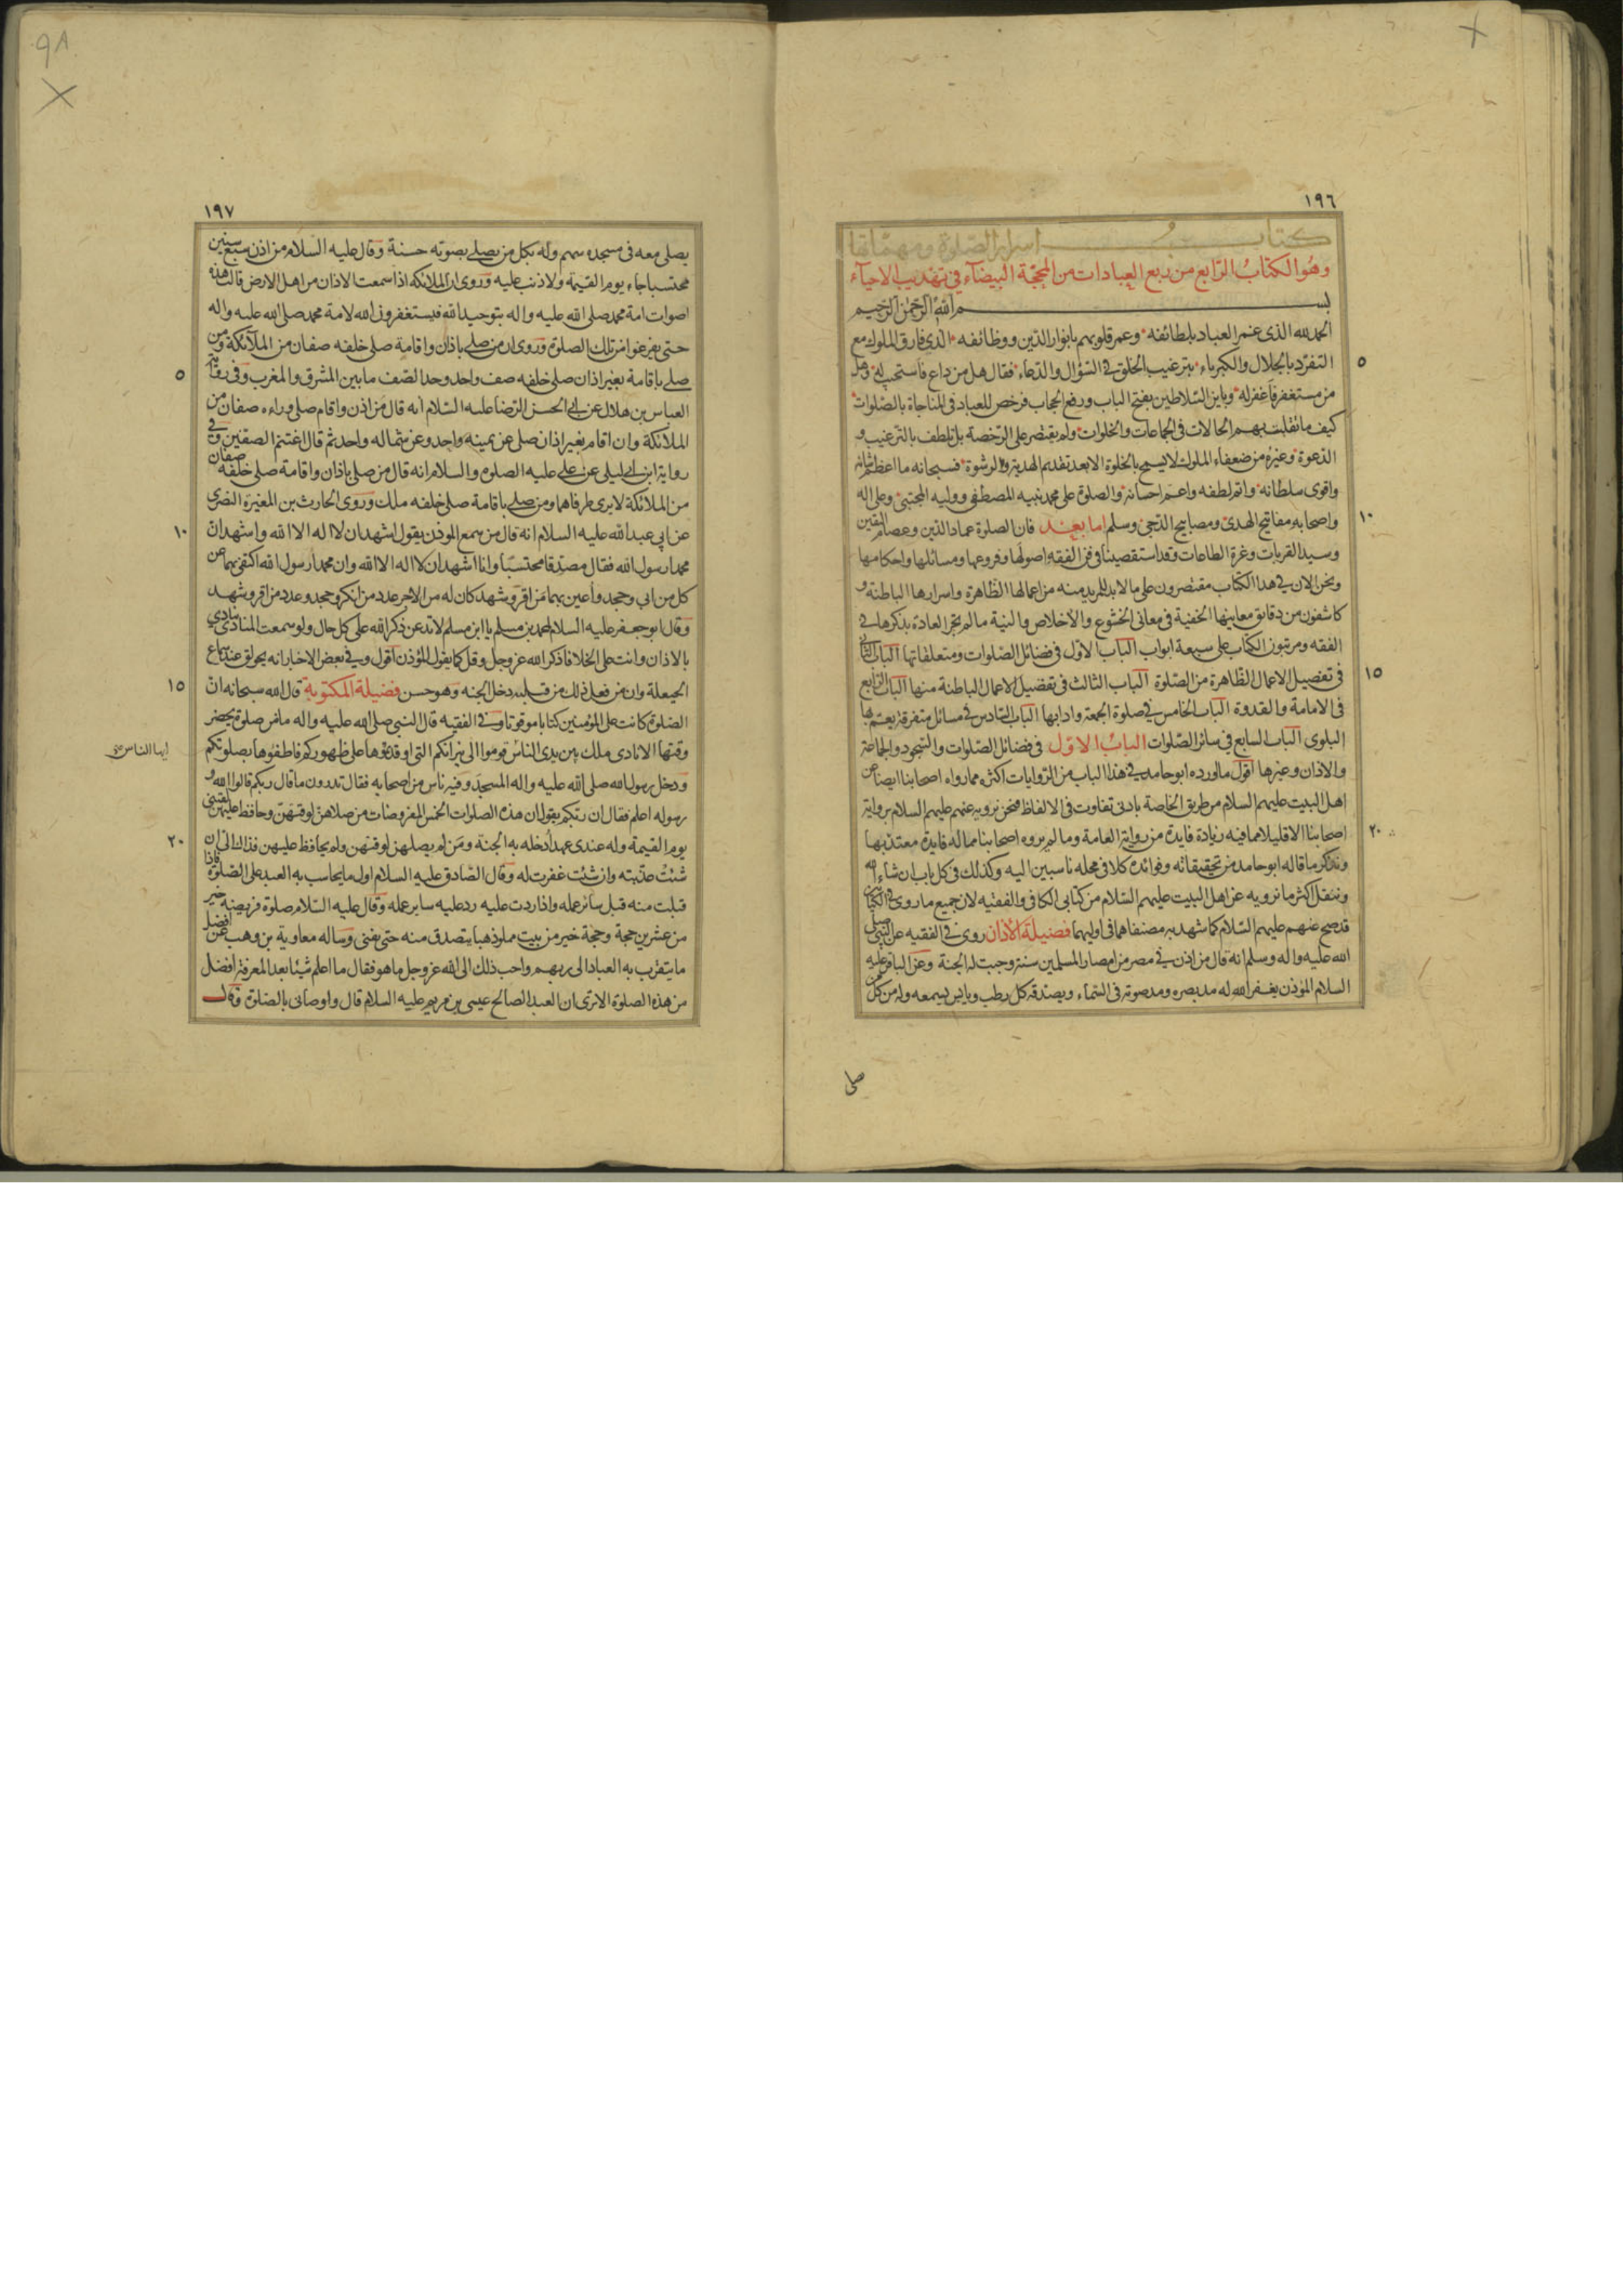 ١٩٦
كتاب اسرار الصلوة ومهماتها
وهو الكتاب الرابع من ربع العبادات من المحجة البيضاء في تهذيب الاحياء
بسم الله الرحمن الرحيم
الحمد لله الذى غمر العباد بلطائفه وعمر قلوبهم بانوار الدين ووظائفه الذي فارق الملوك مع
التفرد بالجلال والكبرياء بترغيب الخلق في السؤال والدعاء فقال هل من داع فاستجيب له وهل
من مستغفر فاغفر له وباين السلاطين بفتح الباب ورفع الحجاب فرخص للعباد فى المناجاة بالصلوات
كيف ما تقلبت بهم الحالات فى الجماعات والخلوات ولم يقتصر على الرخصة بل تلطف بالترغيب و
الدعوة وغيره من ضعفاء الملوك لا يسمح بالخلوة الا بعد تقديم الهدية والرشوة فسبحانه ما اعظم شانه
واقوى سلطانه واتم لطفه واعم احسانه والصلوة على محمد نبيه المصطفى ووليه المجتبى وعلى اله
واصحابه مفاتيح الهدى ومصابيح الدجى وسلم اما بعد فان الصلوة عماد الدين وعصام اليقين
وسيد القربات وغرة الطاعات وقد استقصينا فى فن الفقه اصولها وفروعها ومسائلها واحكامها
ونحن الان في هذا الكتاب مقتصرون على ما لابد للمريد منه من اعمالها الظاهرة واسرارها الباطنة و
كاشفون من دقائق معانيها الخفية فى معانى الخشوع والاخلاص والنية ما لم تجر العادة بذكرها في
الفقه ومرتبون الكتاب على سبعة ابواب الباب الاول فى فضائل الصلوات ومتعلقاتها الباب الثانى
فى تفصيل الاعمال الظاهرة من الصلوة الباب الثالث فى تفضيل الاعمال الباطنة منها الباب الرابع
فى الامامة والقدوة الباب الخامس في صلوة الجمعة وادابها الباب السادس في مسائل متفرقة يعم بها
البلوى الباب السابع في سائر الصلوات الباب الاول فى فضائل الصلوات والسجود والجماعة
والاذان وغيرها اقول ما اورده ابو حامد في هذا الباب من الروايات اكثره مما رواه اصحابنا ايضا عن
اهل البيت عليهم السلام من طريق الخاصة بادنى تفاوت فى الالفاظ فنحن نرويه عنهم عليهم السلام برواية
اصحابنا الا قليلا مما فيه زيادة فايدة من رواية العامة وما لم يروه اصحابنا مما له فايدة معتد بها
ونذكر ما قاله ابو حامد من تحقيقاته وفوائده كلا فى محله ناسبين اليه وكذلك فى كل باب ان شاء الله
وننقل اكثر ما نرويه عن اهل البيت عليهم السلام من كتابى الكافى والفقيه لان جميع ما روى فى الكتابين
قد صح عنهم عليهم السلام كما شهد به مصنفاهما فى اوليهما فضيلة الاذان روى في الفقيه عن النبى صلى
الله عليه واله وسلم انه قال من اذن في مصر من امصار المسلمين سنة وجبت له الجنة وعن الباقر عليه
السلام المؤذن يغفر الله له مد بصره ومد صوته فى السماء ويصدقه كل رطب ويابس يسمعه وله من كل من
٥
١٠
١٥
٢٠
صلى
١٩٧
يصلى معه فى مسجده سهم وله بكل من يصلي بصوته حسنة وقال عليه السلام من اذن سبع سنين
محتسبا جاء يوم القيمة ولا ذنب عليه وروى ان الملائكه اذا سمعت الاذان من اهل الارض قالت هذه
اصوات امة محمد صلى الله عليه واله بتوحيد الله فيستغفرون الله لامة محمد صلى الله عليه واله
حتى يفرغوا من تلك الصلوة وروى ان من صلى باذان واقامة صلى خلفه صفان من الملائكة ومن
صلى باقامة بغير اذان صلى خلفه صف واحد وحد الصف ما بين المشرق والمغرب وفى رواية
العباس بن هلال عن ابي الحسن الرضا عليه السلام انه قال من اذن واقام صلى وراءه صفان من
الملائكة وان اقام بغير اذان صلى عن يمينه واحد وعن شماله واحد ثم قال اغتنم الصفين وفي
رواية ابن ابي ليلى عن علي عليه الصلوة والسلام انه قال من صلى باذان واقامة صلى خلفه صفان
من الملائكة لا يرى طرفاهما ومن صلى باقامة صلى خلفه ملك وروى الحارث بن المغيرة النضرى
عن ابي عبد الله عليه السلام انه قال من سمع الموذن يقول اشهد ان لا اله الا الله واشهد ان
محمدا رسول الله فقال مصدقا محتسبا وانا اشهد ان لا اله الا الله وان محمدا رسول الله اكتفى بهما عن
كل من ابى وجحد واعين بهما من اقر وشهد كان له من الاجر عدد من انكر وجحد وعدد من اقر وشهد
وقال ابو جعفر عليه السلام لمحمد بن مسلم يا ابن مسلم لا تدعن ذكر الله على كل حال ولو سمعت المنادى ينادي
بالاذان وانت على الخلا فاذكر الله عز وجل وقل كما يقول المؤذن اقول وفي بعض الاخبار انه يحولق عند سماع
الحيعلة وان من فعل ذلك من قلبه دخل الجنه وهو حسن فضيلة المكتوبة قال الله سبحانه ان
الصلوة كانت على المؤمنين كتابا موقوتا وفي الفقيه قال النبى صلى الله عليه واله ما من صلوة يحضر
وقتها الا نادى ملك بين يدى الناس قوموا الى نيرانكم التى اوقدتموها على ظهوركم فاطفؤها بصلوتكم
ودخل رسول الله صلى الله عليه واله المسجد وفيه ناس من اصحابه فقال تدرون ما قال ربكم قالوا الله و
رسوله اعلم فقال ان ربكم يقول ان هذه الصلوات الخمس المفروضات من صلاهن لوقتهن وحافظ عليهن لقينى
يوم القيمة وله عندى عهد ادخله به الجنة ومن لم يصلهن لوقتهن ولم يحافظ عليهن فذلك الى ان
شئت عذبته وان شئت غفرت له وقال الصادق عليه السلام اول ما يحاسب به العبد على الصلوة فاذا
قبلت منه قبل سائر عمله واذا ردت عليه رد عليه ساير عمله وقال عليه السلام صلوة فريضة خير
من عشرين حجة وحجة خير من بيت مملو ذهبا يتصدق منه حتى يفنى وساله معاوية بن وهب عن افضل
ما يتقرب به العباد الى ربهم واحب ذلك الى الله عز وجل ما هو فقال ما اعلم شيئا بعد المعرفة افضل
من هذه الصلوة الا ترى ان العبد الصالح عيسى بن مريم عليه السلام قال واوصانى بالصلوة وقال
ايها الناس
٥
١٠
١٥
٢٠
٩٨